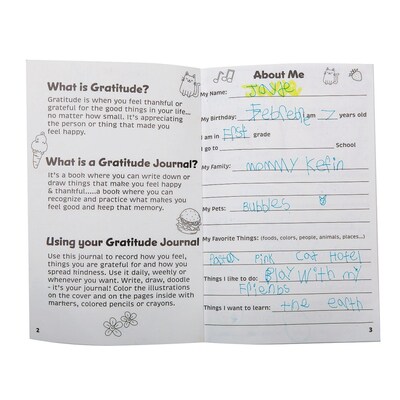 What is Gratitude?
Gratitude is when you feel thankful or
grateful for the good things in your life...
no matter how small. It's appreciating
the person or thing that made you
feel happy.
What is a Gratitude Journal?
It's a book where you can write down or
draw things that make you feel happy
& thankful.....a book where you can
recognize and practice what makes you
feel good and keep that memory.
Using your Gratitude Journal
Use this journal to record how you feel,
things you are grateful for and how you
spread kindness. Use it daily, weekly or
whenever you want. Write, draw, doodle
- it's your journal! Color the illustrations
on the cover and on the pages inside with
markers, colored pencils or crayons.
2
About Me
My Name:
My Birthday: I am 7 years old
I am in grade
I go to School
My Family: mommy
My Pets: Bubbles
My Favorite Things: (foods, colors, people, animals, places...)
Pink Cat Hotel
Things I like to do: Play with my
Things I want to learn: the earth
3